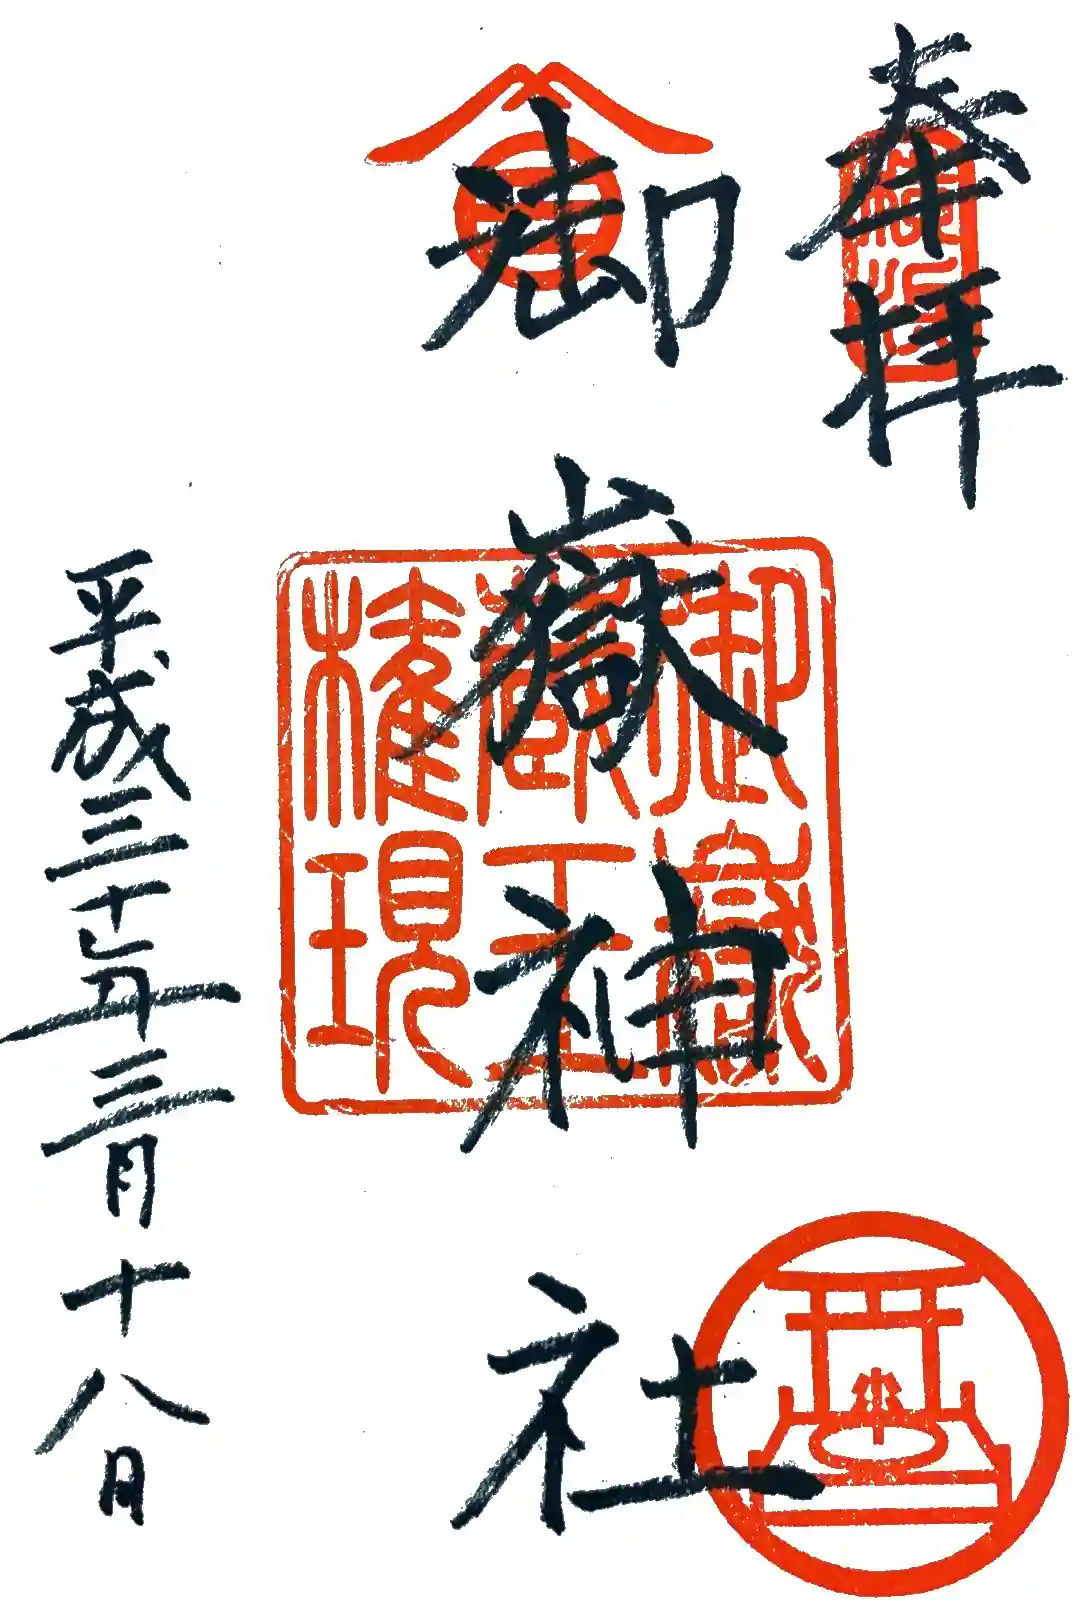 奉拝
御嶽神社
平成三十年三月十八日
御嶽
藏王
權現